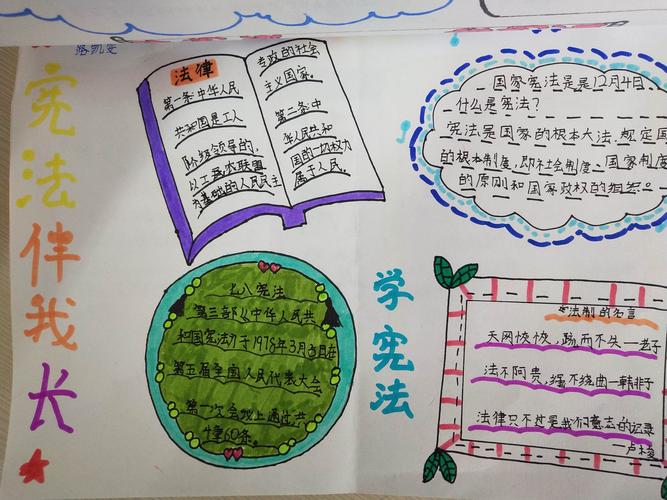 宪法伴我长
法律
第一条中华人民
共和国是工人
阶级领导的,
以工农大联盟
为基础的人民民主
专政的社会
主义国家。
第二条中
华人民共和
国的一切权力
属于人民。
国家宪法是是12月4日
什么是宪法?
宪法是国家的根本大法,规定国
的根本制度,即社会制度、国家制度
的原则和国家政权的组
七八宪法
第三部《中华人民共
和国宪法》于1978年3月5日在
第五届全国人民代表大会
第一次会议上通过共
4章60条。
学宪法
法制的名言
天网恢恢,疏而不失—老子
法不阿贵,绳不绕曲—韩非子
法律只不过是我们意志的记录
—卢梭